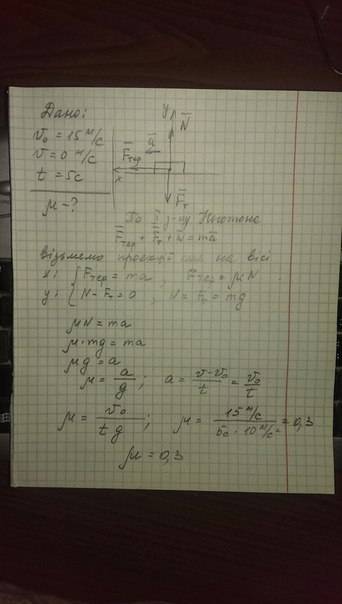 Дано:
v₀ = 15 м/с
v = 0 м/с
t = 5с
μ - ?
y
N
a
Fтер
x
Fт
По II з-ну Ньютона
Fтер + Fт + N = ma
Візьмемо проекції на вісі
x: { Fтер = ma, Fтер = μN
y: { N - Fт = 0, N = Fт = mg
μN = ma
μ·mg = ma
μg = a
μ = a/g; a = v-v₀/t = v₀/t
μ = v₀/tg; μ = 15 м/с / 5с · 10 м/с² = 0,3
μ = 0,3